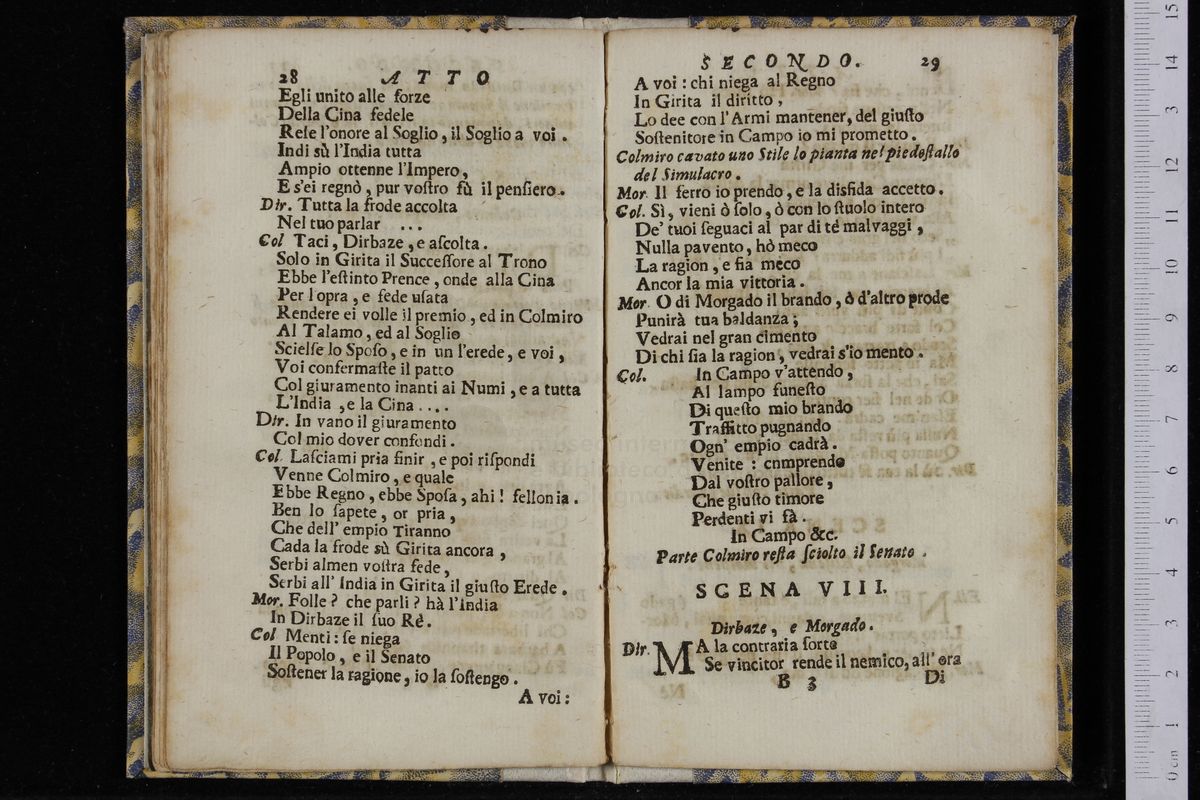 28 ATTO
Egli unito alle forze
Della Cina fedele
Reſe l'onore al Soglio, il Soglio a voi.
Indi sù l'India tutta
Ampio ottenne l'Impero,
E s'ei regnò, pur voſtro fù il penſiero.
Dir. Tutta la frode accolta
Nel tuo parlar ...
Col Taci, Dirbaze, e aſcolta.
Solo in Girita il Succeſſore al Trono
Ebbe l'eſtinto Prence, onde alla Cina
Per l'opra, e fede uſata
Rendere ei volle il premio, ed in Colmiro
Al Talamo, ed al Soglio
Scielſe lo Spoſo, e in un l'erede, e voi,
Voi confermaſte il patto
Col giuramento inanti ai Numi, e a tutta
L'India, e la Cina ....
Dir. In vano il giuramento
Col mio dover confondi.
Col. Laſciami pria finir, e poi riſpondi
Venne Colmiro, e quale
Ebbe Regno, ebbe Spoſa, ahi! fellonia.
Ben lo ſapete, or pria,
Che dell' empio Tiranno
Cada la frode sù Girita ancora,
Serbi almen voſtra fede,
Serbi all' India in Girita il giuſto Erede.
Mor. Folle? che parli? hà l'India
In Dirbaze il ſuo Rè.
Col Menti: ſe niega
Il Popolo, e il Senato
Soſtener la ragione, io la ſoſtengo.
A voi:
SECONDO. 29
A voi: chi niega al Regno
In Girita il diritto,
Lo dee con l'Armi mantener, del giuſto
Soſtenitore in Campo io mi prometto.
Colmiro cavato uno Stile lo pianta nel piedeſtallo
del Simulacro.
Mor. Il ferro io prendo, e la disfida accetto.
Col. Sì, vieni ò ſolo, ò con lo ſtuolo intero
De' tuoi ſeguaci al par di te malvaggi,
Nulla pavento, hò meco
La ragion, e fia meco
Ancor la mia vittoria.
Mor. O di Morgado il brando, ò d'altro prode
Punirà tua baldanza;
Vedrai nel gran cimento
Di chi ſia la ragion, vedrai s'io mento.
Col. In Campo v'attendo,
Al lampo funeſto
Di queſto mio brando
Traffitto pugnando
Ogn' empio cadrà.
Venite: cnmprendo
Dal voſtro pallore,
Che giuſto timore
Perdenti vi fà.
In Campo &c.
Parte Colmiro reſta ſciolto il Senato.
SCENA VIII.
Dirbaze, e Morgado.
Dir. MA la contraria ſorte
Se vincitor rende il nemico, all' ora
B 3 Di